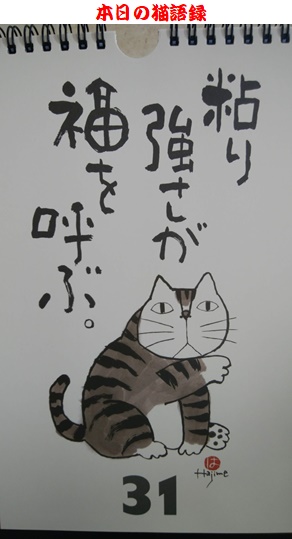 本日の猫語録
粘り
強さが
福を
呼ぶ。
は
Hajime
31